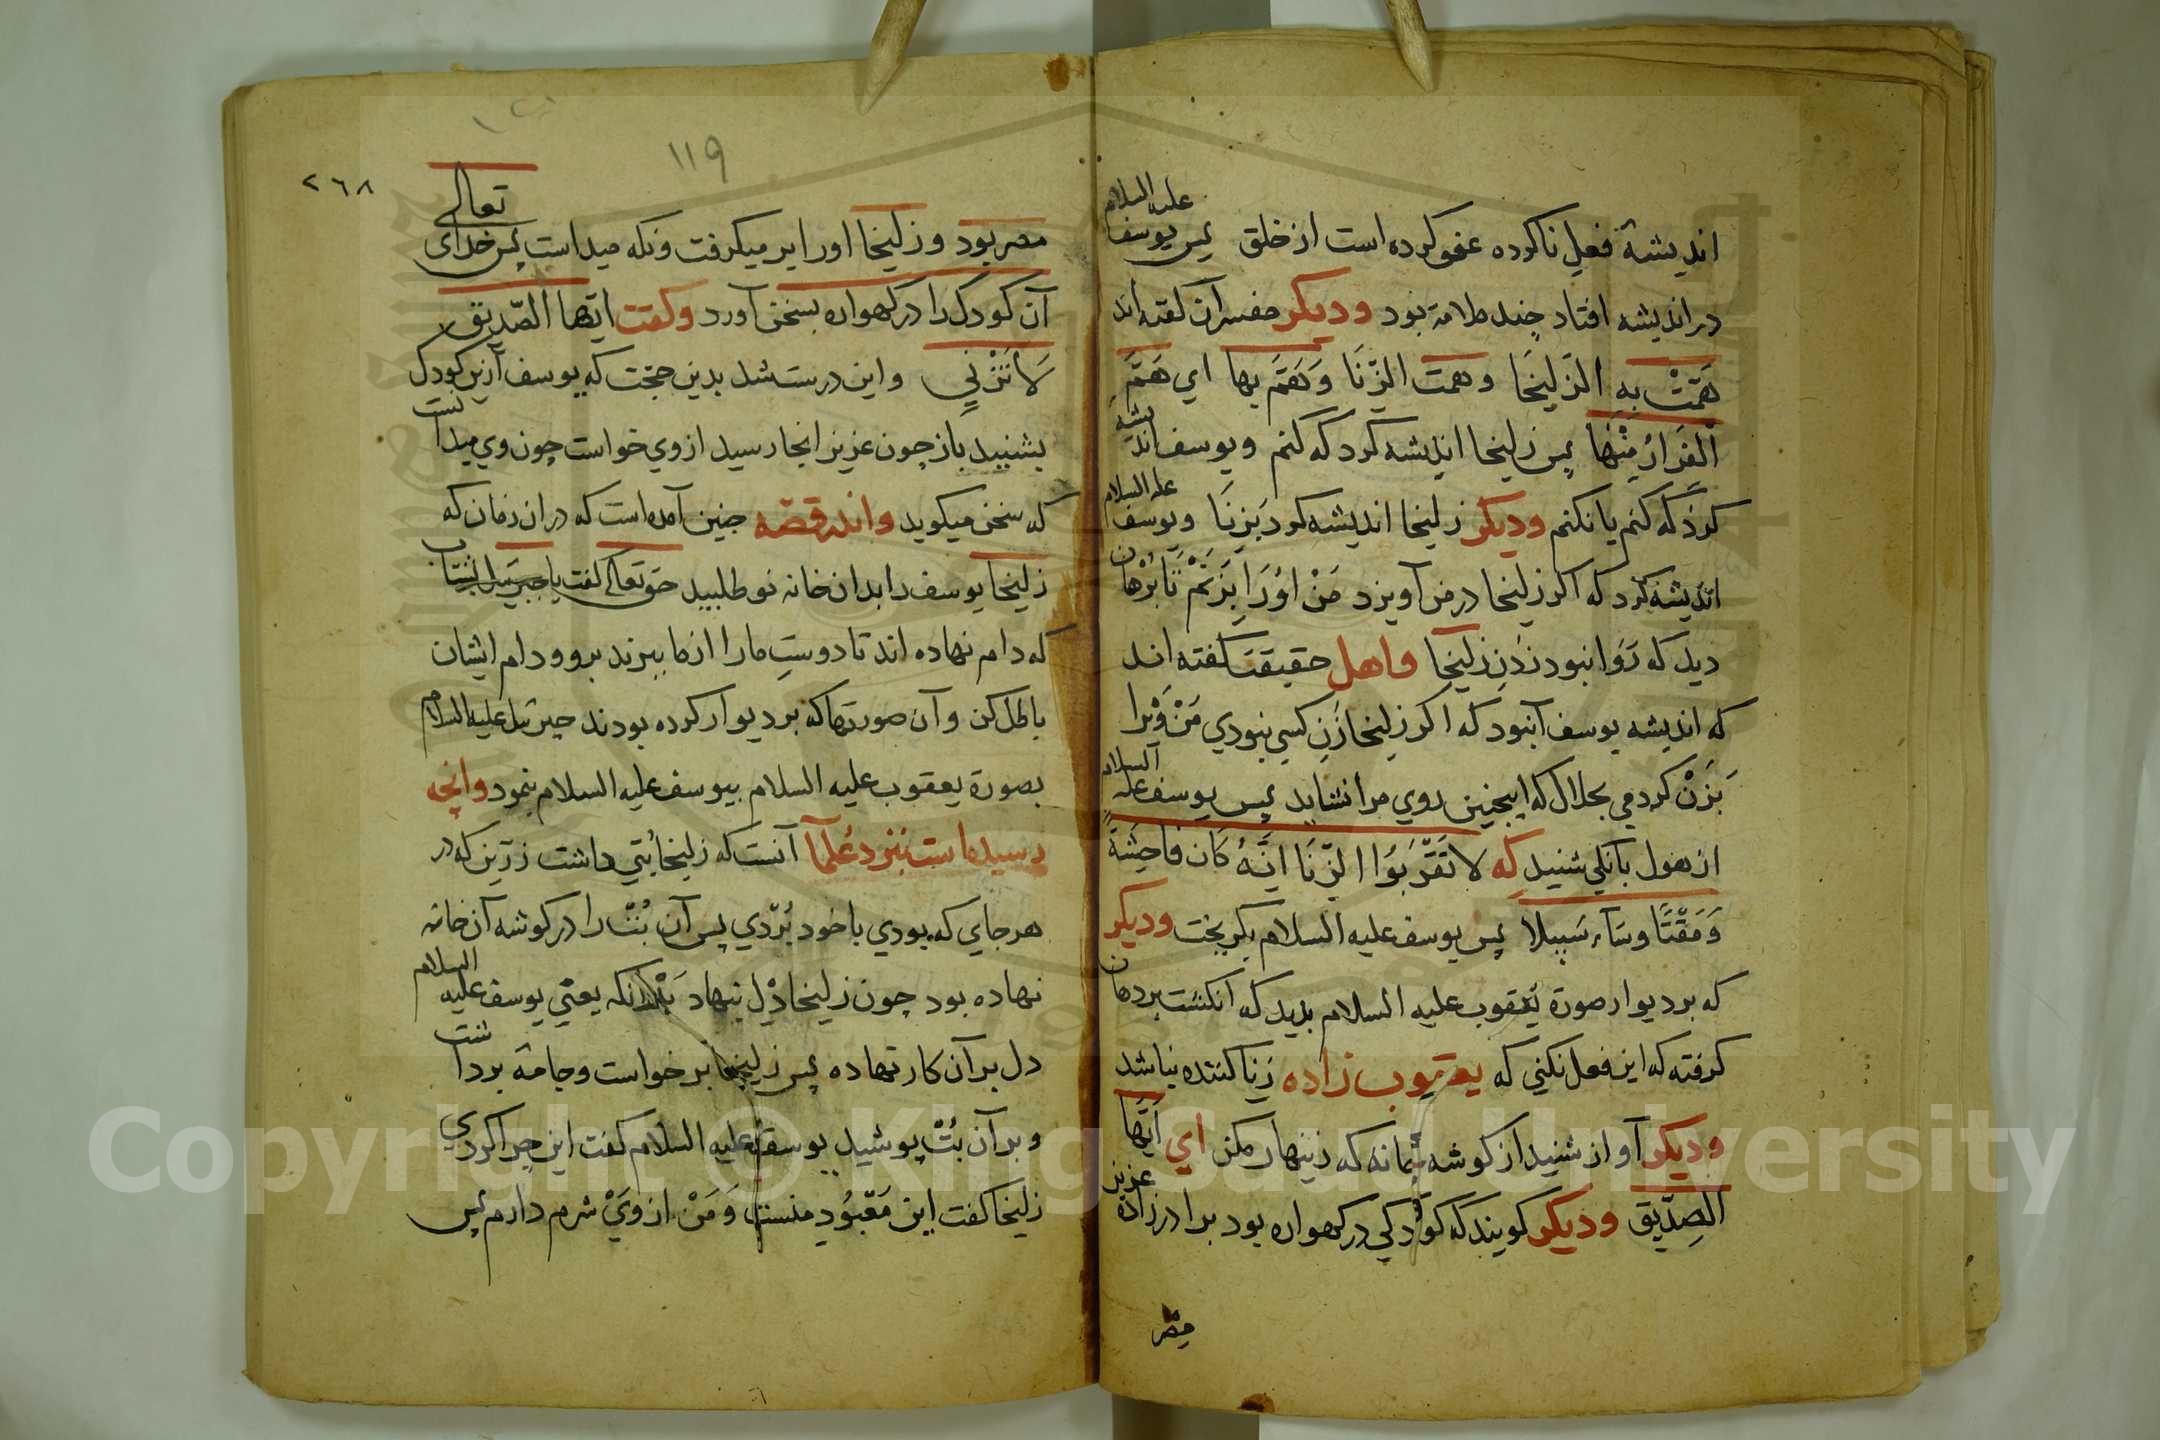 اندیشهٔ فعل ناکرده عفو کرده است از خلق پس یوسف علیه السلام
در اندیشه افتاد چند ملامة بود ودیکر مفسران کفته اند
هَمَّتْ بِهِ الزلیخَا وهمت الزِّنَا وَهَمَّ بها اي هَمَّ
الفَرَارُ مِنْهَا پس زلیخا اندیشه کرد که کنم ویوسف اندیشهٔ
کرد که کنم یا نکنم ودیکر زلیخا اندیشه کرد بَزِنَا ویوسف علیه السلام
اندیشه کرد که اکر زلیخا در من آویزد مَنْ اوُرَا بَزَنَمْ تَا بُرْهان
دید که رَوَا نبود زدنِ زلیخا واهل حقیقت کفته اند
که اندیشه یوسف آنبود که اکر زلیخا زَنِ کسي نبودي مَنْ وَیْرا
بَزَنْ کردمي بحلال که اینچنین روي مرا نشاید پس یوسف علیه السلام
از هول بانکي شنید که لا تَقْرَبَوُا الزِّنَا انَّهُ كَان فَاحِشَةً
وَمَقْتًا وسَآء سَبیلا پس یوسف علیه السلام بکریخت ودیکر
که بر دیوار صورة یَعقوب علیه السلام بدید که انکشت بر دهان
کرفته که این فعل نکني که یعقوب زاده زِنا کننده نباشد
ودیکر آواز شنید از کوشه خانه که زینهار مکن اي اَیُّهَا
الصِدِّیق ودیکر کویند که کودکي در کهواره بود برادر زادهٔ عزیز
مصر
١١٩
٢٦٨
مصر بود وزلیخا اورا ایر میکرفت ونکه میداست پس خدای تعالی
آن کودک را در کهواره بسخن آورد وکفت ایّها الصّدیق
لاَ تَزْنِي واین درست شد بدین حجّت که یوسف آزین کودک
بشنید باز چون عزیز انجا رسید از وي خواست چون وي میدانست
که سخن میکوید واندر قصّه چنین آمده است که دران زمان که
زلیخا یوسف را بدان خانه نو طلبید حق تعالی کفت یا جبرئیل بشتاب
که دام نهاده اند تا دوستِ مارا از ما ببرند برو ودام ایشان
باطل کن وآن صورتها که بر دیوار کرده بودند جبرئیل علیه السلام
بصورة یعقوب علیه السلام بیوسف علیه السلام بنمود وانچه
رسیده است بَنزد عُلمآ آنست که زلیخا بُتي داشت زرّین که در
هر جاي که بودي با خود بُرّدي پس آن بُتْ را در کوشه آن خانه
نهاده بود چون زلیخا دْل نهاد بَدانکه یعني یوسف علیه السلام
دل بر آن کار نهاده پس زلیخا بر خواست وجامهٔ برداشت
وبر آن بُتْ پوشید یوسف علیه السلام کفت این چرا کردي
زلیخا کفت این مَعْبُودِ منست وَمَنْ از وَيْ شرم دارم پس
Copyright © King Saud University